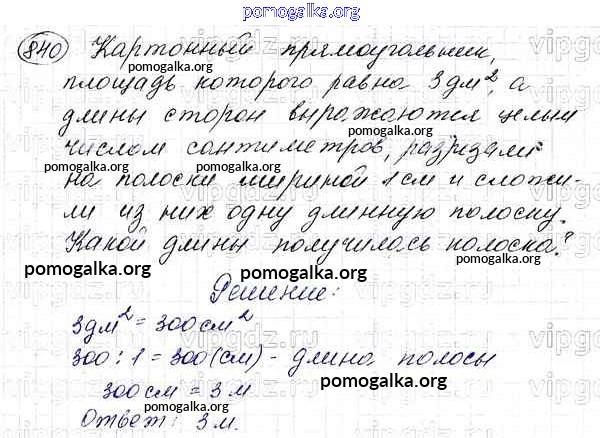 pomogalka.org
840 Картонный прямоугольник,
pomogalka.org
площадь которого равна 3 дм², а
длины сторон выражаются целым
pomogalka.org
числом сантиметров, разрезали
pomogalka.org pomogalka.org
на полоски шириной 1 см и сложи-
ли из них одну длинную полоску.
pomogalka.org pomogalka.org
Какой длины получилась полоска?
pomogalka.org pomogalka.org pomogalka.org
Решение:
3 дм² = 300 см²
300 : 1 = 300 (см) - длина полосы
300 см = 3 м
pomogalka.org
pomogalka.org
Ответ: 3 м.